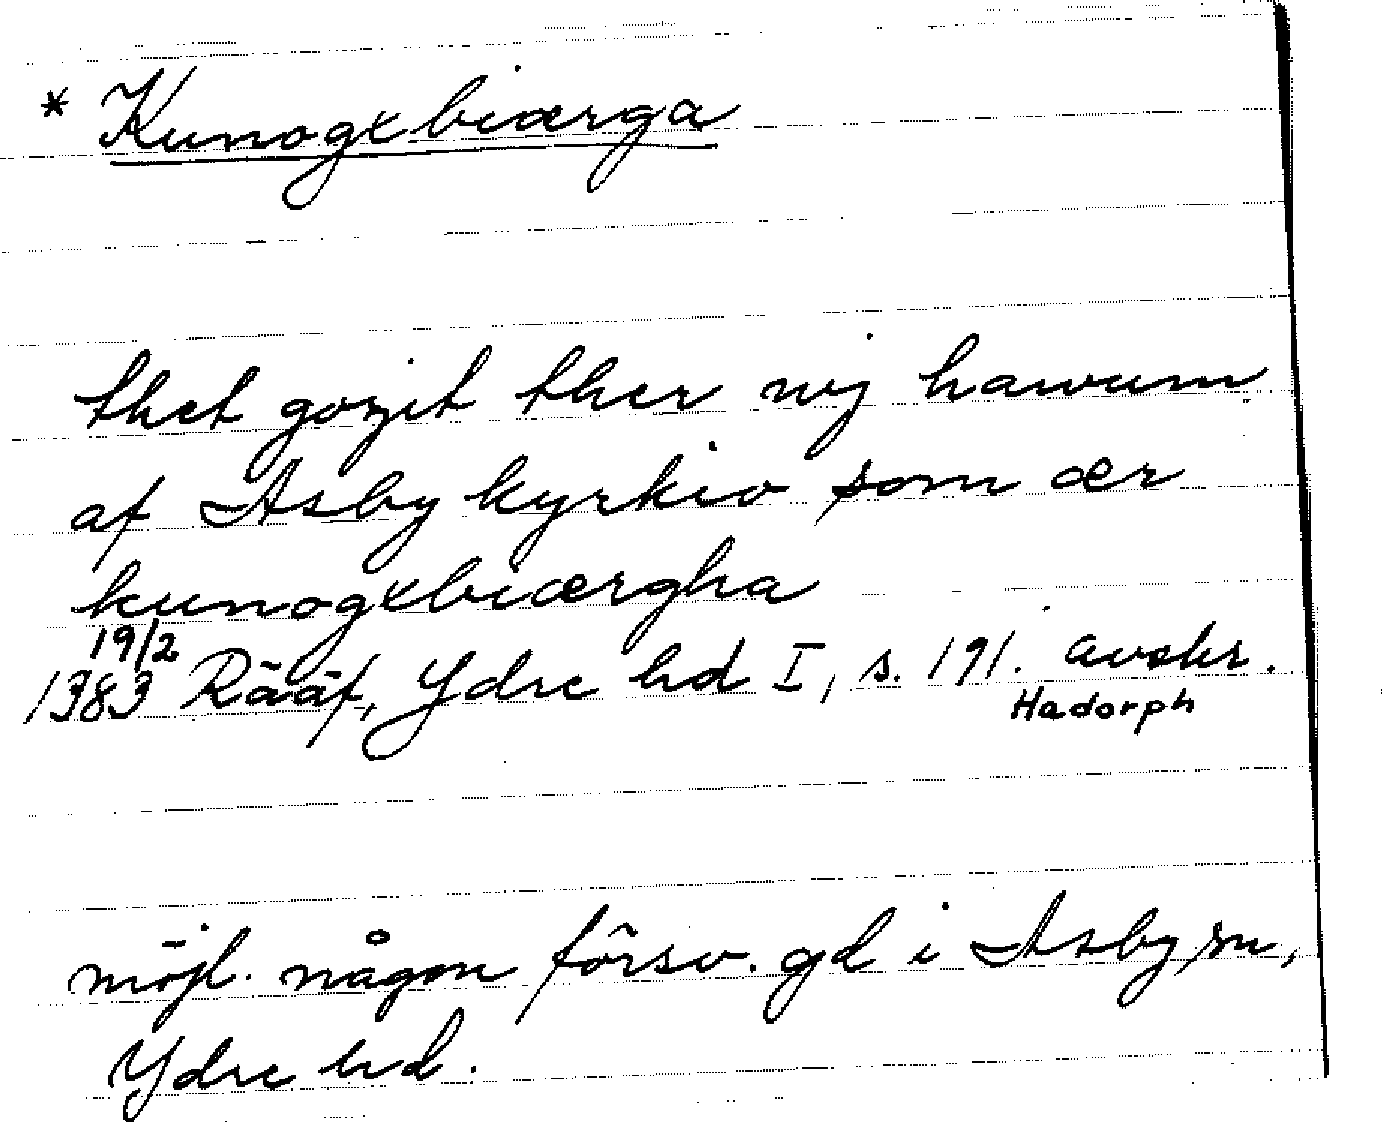 * Kunogxbiærga
thet gozit ther wij hawum
af Asby kyrkio som ær
kunogxbiærgha
19/2
1383 Rääf, Ydre hd I, s. 191. avskr.
Hadorph
möjl. någon försv. gd i Asby sn,
Ydre hd.